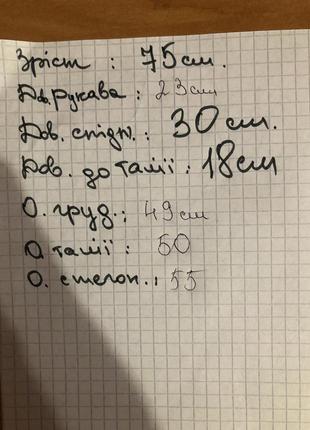 Зріст : 75см.
Дов. Рукава : 23см
Дов. спідн. : 30см.
Дов. до талії : 18см
О. груд. : 49см
О талії : 50
О. стегон. : 55